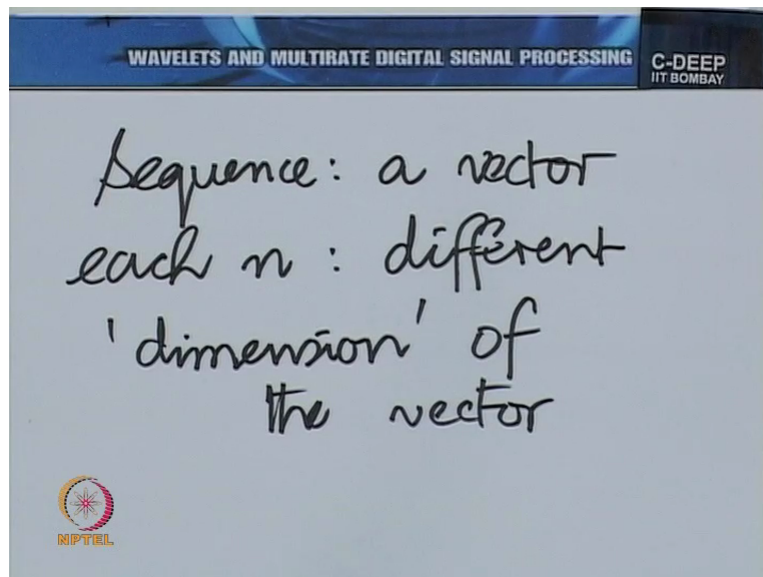 WAVELETS AND MULTIRATE DIGITAL SIGNAL PROCESSING
C-DEEP
IIT BOMBAY
Sequence: a vector
each n : different
'dimension' of
the vector
NPTEL